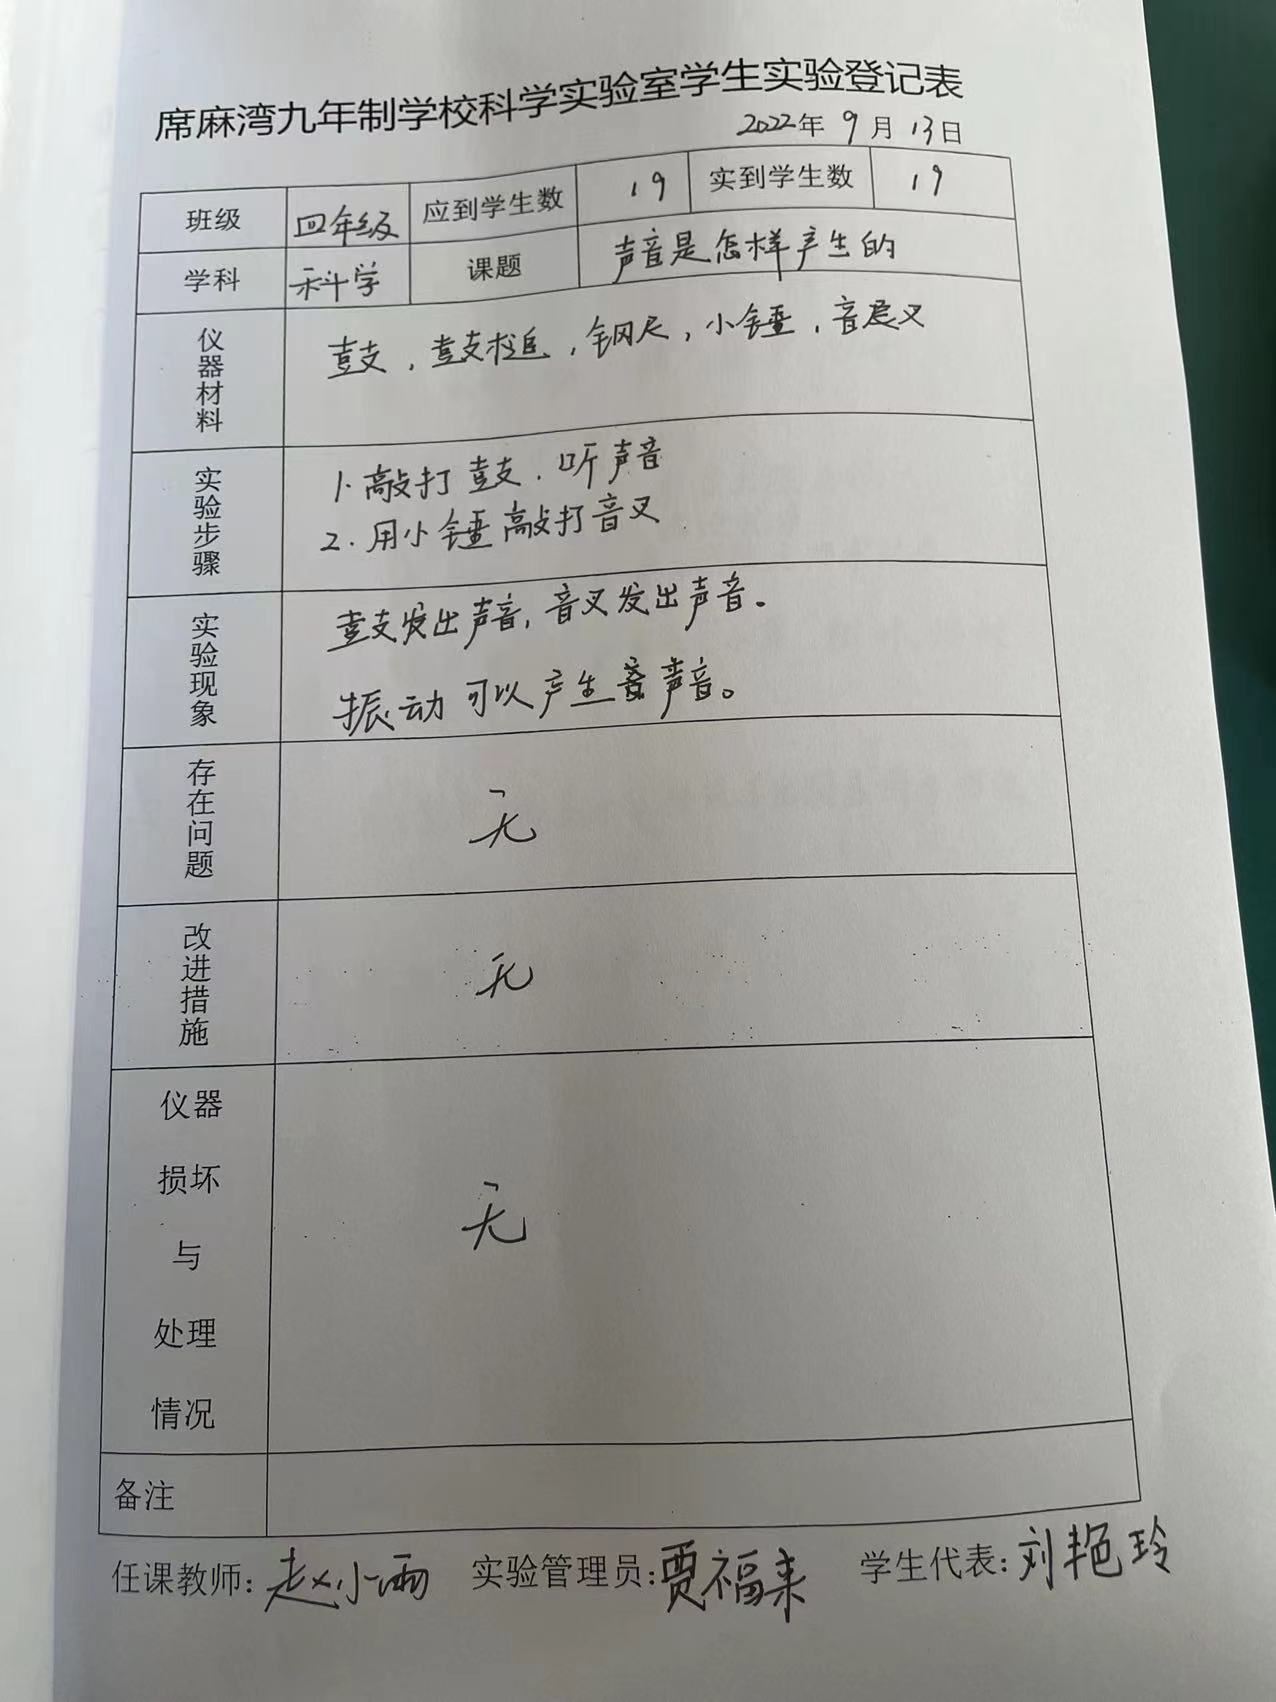 席麻湾九年制学校科学实验室学生实验登记表
2022年 9月 13日
班级 四年级 应到学生数 19 实到学生数 19
学科 科学 课题 声音是怎样产生的
仪器材料 鼓，鼓槌，钢尺，小锤，音叉
实验步骤 1.敲打鼓.听声音
2.用小锤敲打音叉
实验现象 鼓发出声音,音叉发出声音。
振动可以产生声音。
存在问题 无
改进措施 无
仪器
损坏
与
处理
情况
无
备注
任课教师:赵小雨 实验管理员:贾福来 学生代表:刘艳玲